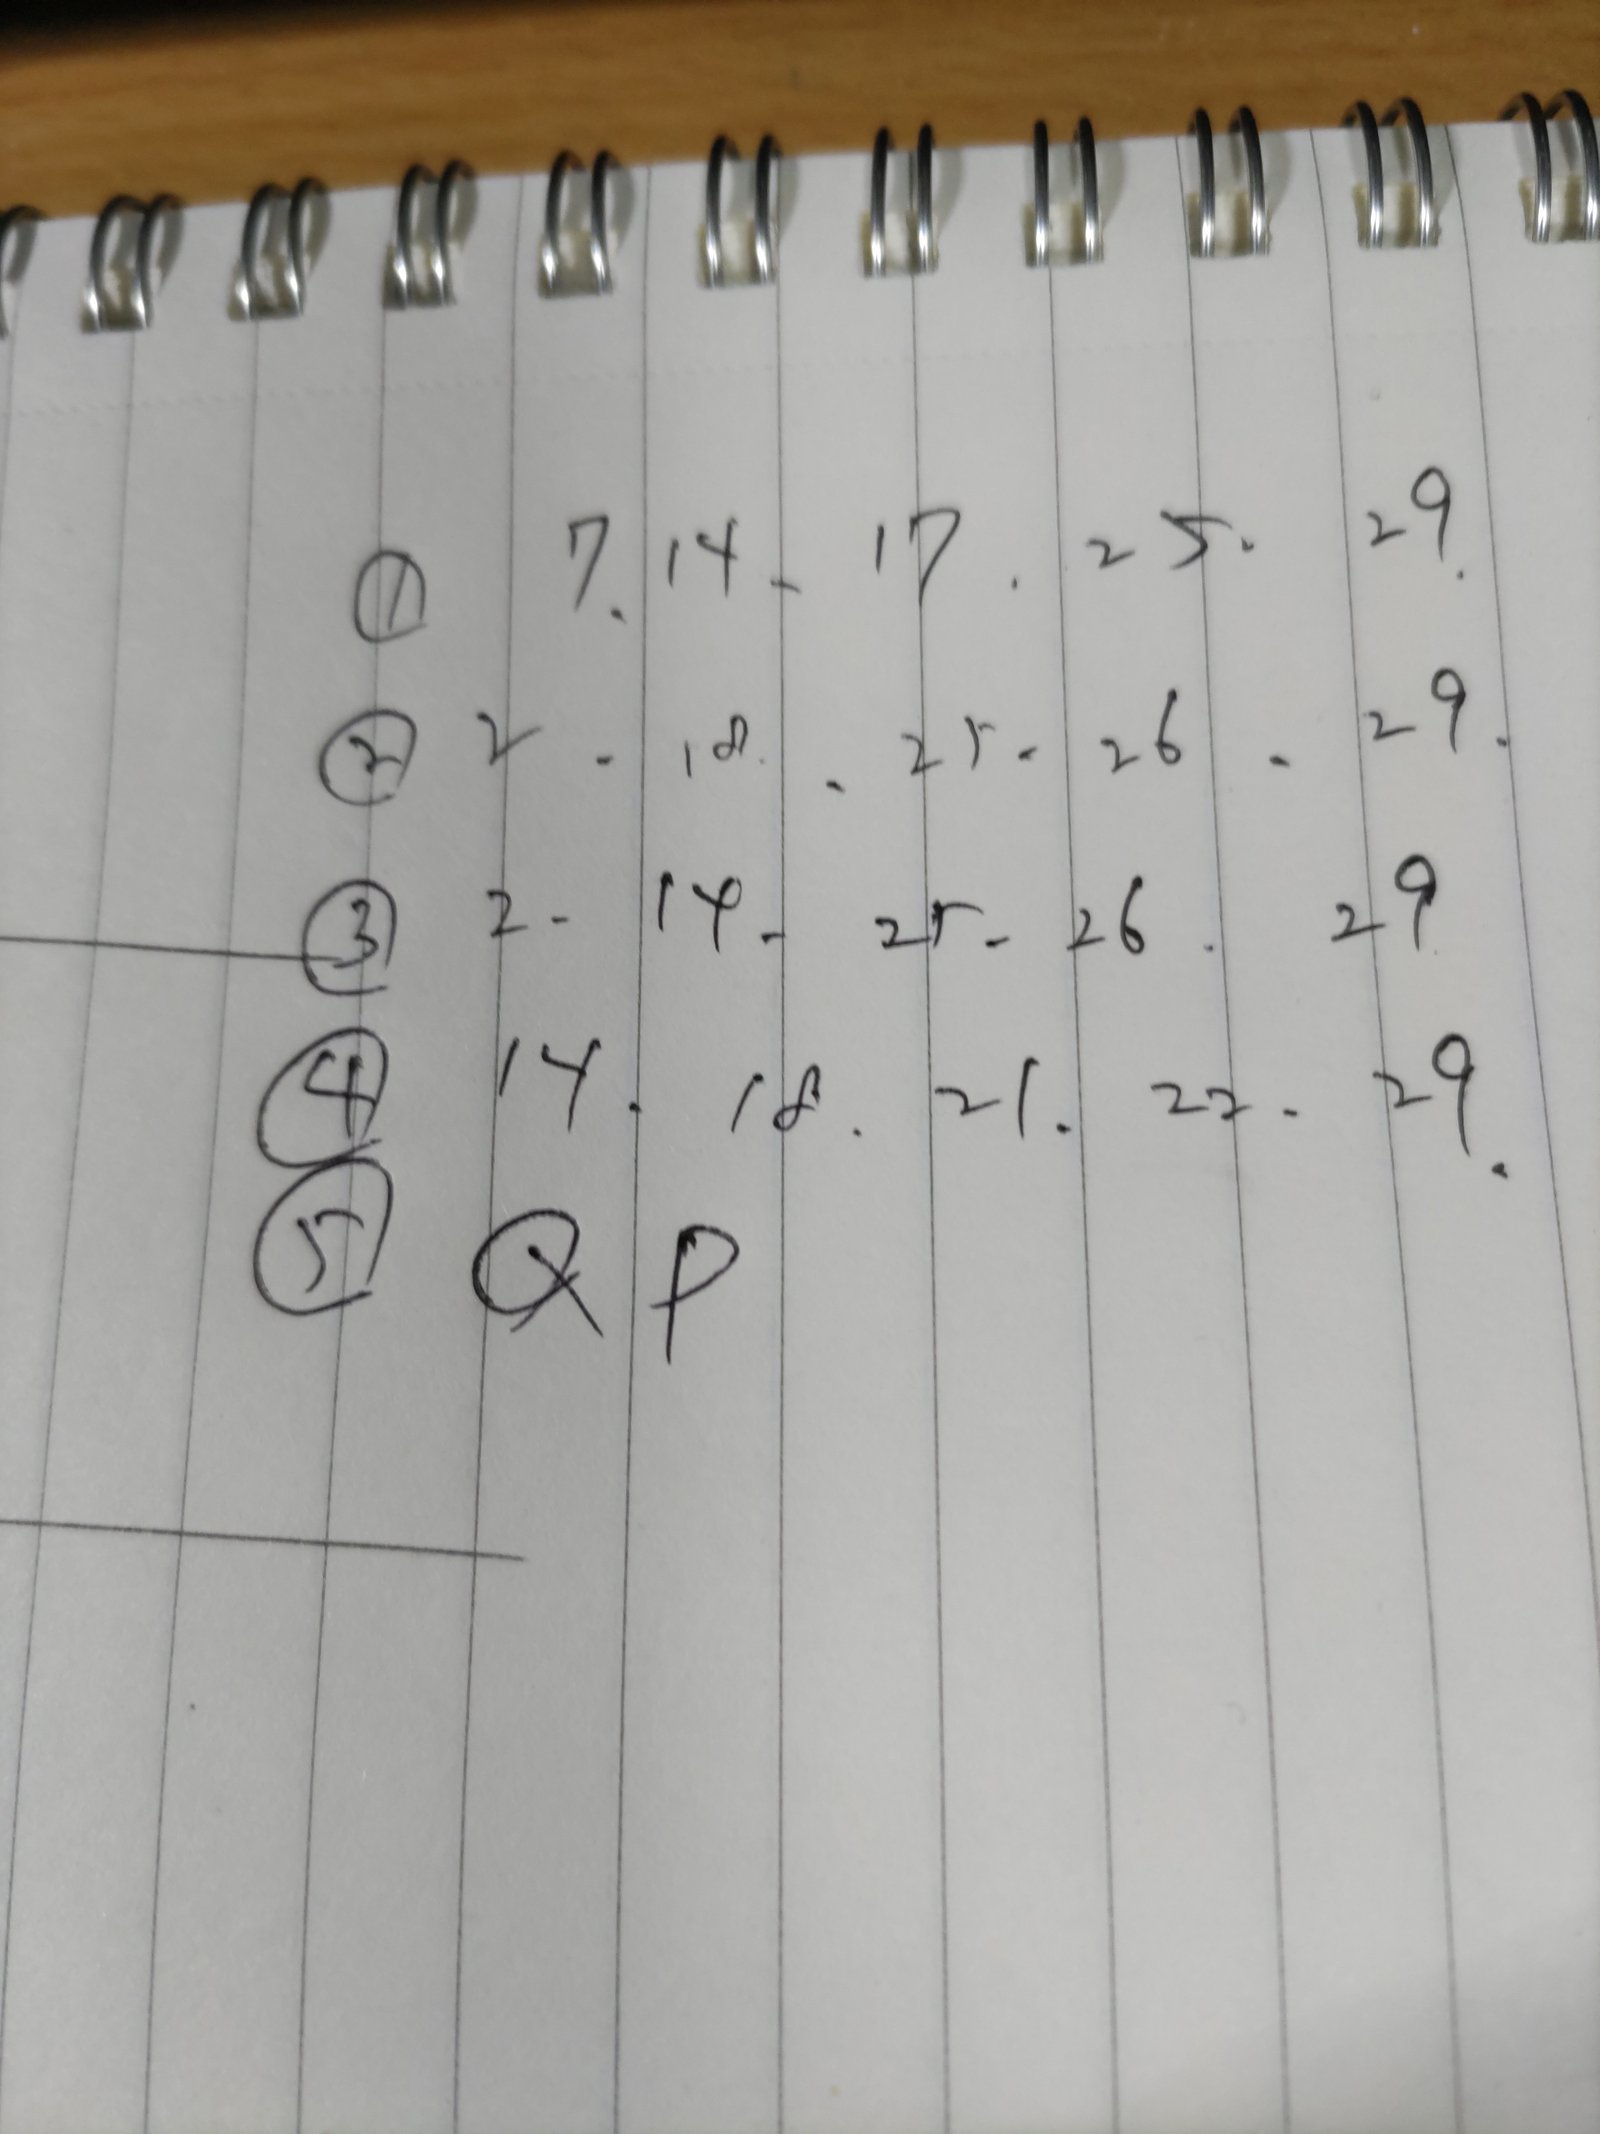 ① 7. 14 - 17. 25. 29.
② 2 - 18. 25 - 26 - 29.
③ 2 - 14 - 25 - 26. 29
④ 14. 18. 21. 22 - 29.
⑤ QP